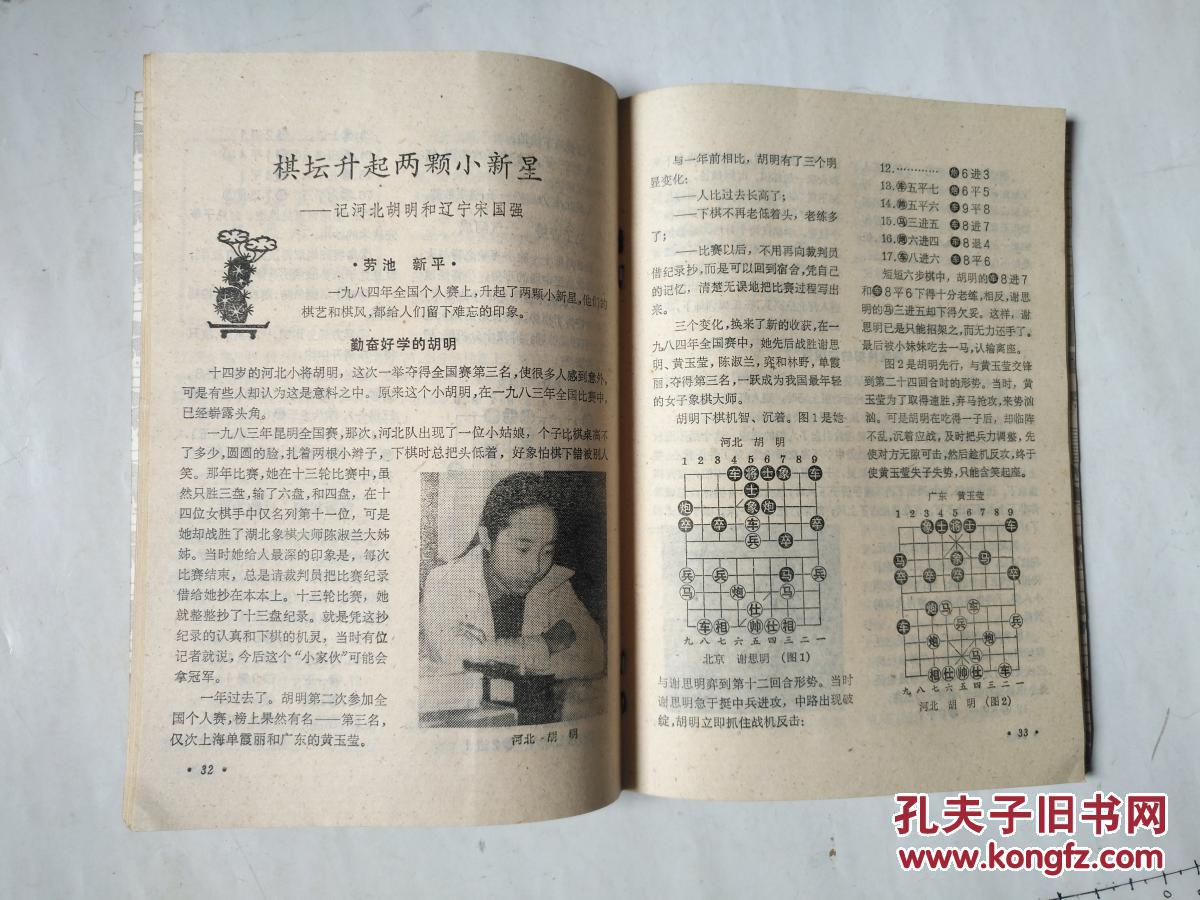 棋坛升起两颗小新星
——记河北胡明和辽宁宋国强
·劳池 新平·
一九八四年全国个人赛上,升起了两颗小新星,他们的
棋艺和棋风,都给人们留下难忘的印象。
勤奋好学的胡明
十四岁的河北小将胡明,这次一举夺得全国赛第三名,使很多人感到意外,
可是有些人却认为这是意料之中。原来这个小胡明,在一九八三年全国比赛中,
已经崭露头角。
一九八三年昆明全国赛,那次,河北队出现了一位小姑娘,个子比棋桌高不
了多少,圆圆的脸,扎着两根小辫子,下棋时总把头低着,好象怕棋下错被别人
笑。那年比赛,她在十三轮比赛中,虽
然只胜三盘,输了六盘,和四盘,在十
四位女棋手中仅名列第十一位,可是
她却战胜了湖北象棋大师陈淑兰大姊
姊。当时她给人最深的印象是,每次
比赛结束,总是请裁判员把比赛纪录
借给她抄在本本上。十三轮比赛,她
就整整抄了十三盘纪录。就是凭这抄
纪录的认真和下棋的机灵,当时有位
记者就说,今后这个“小家伙”可能会
拿冠军。
一年过去了。胡明第二次参加全
国个人赛,榜上果然有名——第三名,
仅次上海单霞丽和广东的黄玉莹。
河北 胡 明
·32·
与一年前相比,胡明有了三个明
显变化:
——人比过去长高了;
——下棋不再老低着头,老练多
了;
——比赛以后,不用再向裁判员
借纪录抄,而是可以回到宿舍,凭自己
的记忆,清楚无误地把比赛过程写出
来。
三个变化,换来了新的收获,在一
九八四年全国赛中,她先后战胜谢思
明、黄玉莹,陈淑兰,弈和林野,单霞
丽,夺得第三名,一跃成为我国最年轻
的女子象棋大师。
胡明下棋机智、沉着。图1是她
河北 胡 明
1 2 3 4 5 6 7 8 9
车将士象车
士
炮象炮
卒卒车卒
兵卒
兵兵马兵
马炮马
仕
车相帅仕相
九八七六五四三二一
北京 谢思明 (图1)
与谢思明弈到第十二回合形势。当时
谢思明急于挺中兵进攻,中路出现破
绽,胡明立即抓住战机反击:
12.………… 炮6进3
13.车五平七 炮6平5
14.帅五平六 车9平8
15.马三进五 车8进7
16.帅六进四 车8退4
17.车八进六 车8平6
短短六步棋中,胡明的车8进7
和车8平6下得十分老练,相反,谢思
明的马三进五却下得欠妥。这样,谢
思明已是只能招架之,而无力还手了。
最后被小妹妹吃去一马,认输离座。
图2是胡明先行,与黄玉莹交锋
到第二十四回合时的形势。当时,黄
玉莹为了取得速胜,弃马抢攻,来势汹
汹。可是胡明在吃得一子后,却临阵
不乱,沉着应战,及时把兵力调整,先
使对方无隙可击,然后趁机反攻,终于
使黄玉莹失子失势,只能含笑起座。
广东 黄玉莹
1 2 3 4 5 6 7 8 9
象士将士车
马象马
卒卒卒卒
炮马车
车兵
炮炮
马
相仕帅仕相
九八七六五四三二一
河北 胡 明 (图2)
·33·
孔夫子旧书网
www.kongfz.com